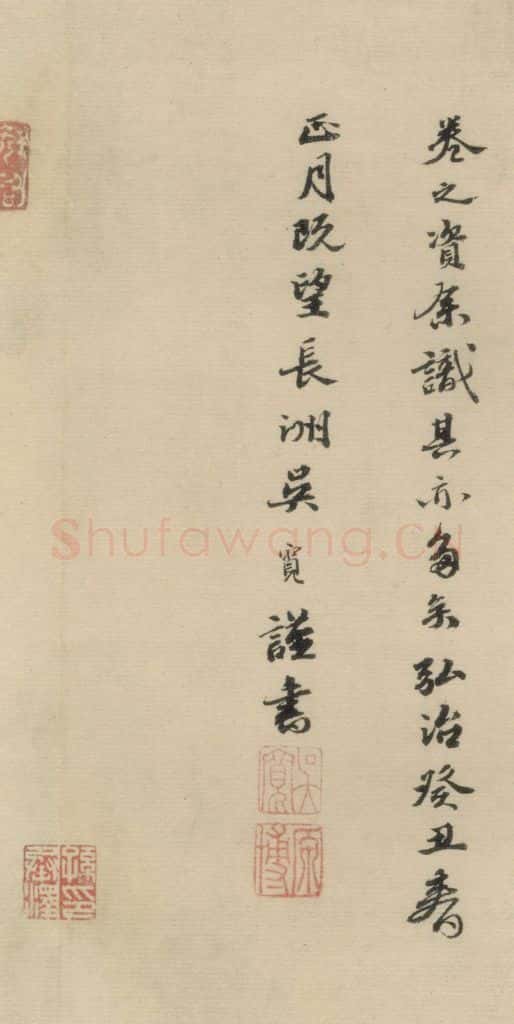 卷之資余識其亦多矣弘治癸丑春
正月既望長洲吳寬謹書
吳寬
原博
Shufawang.cn